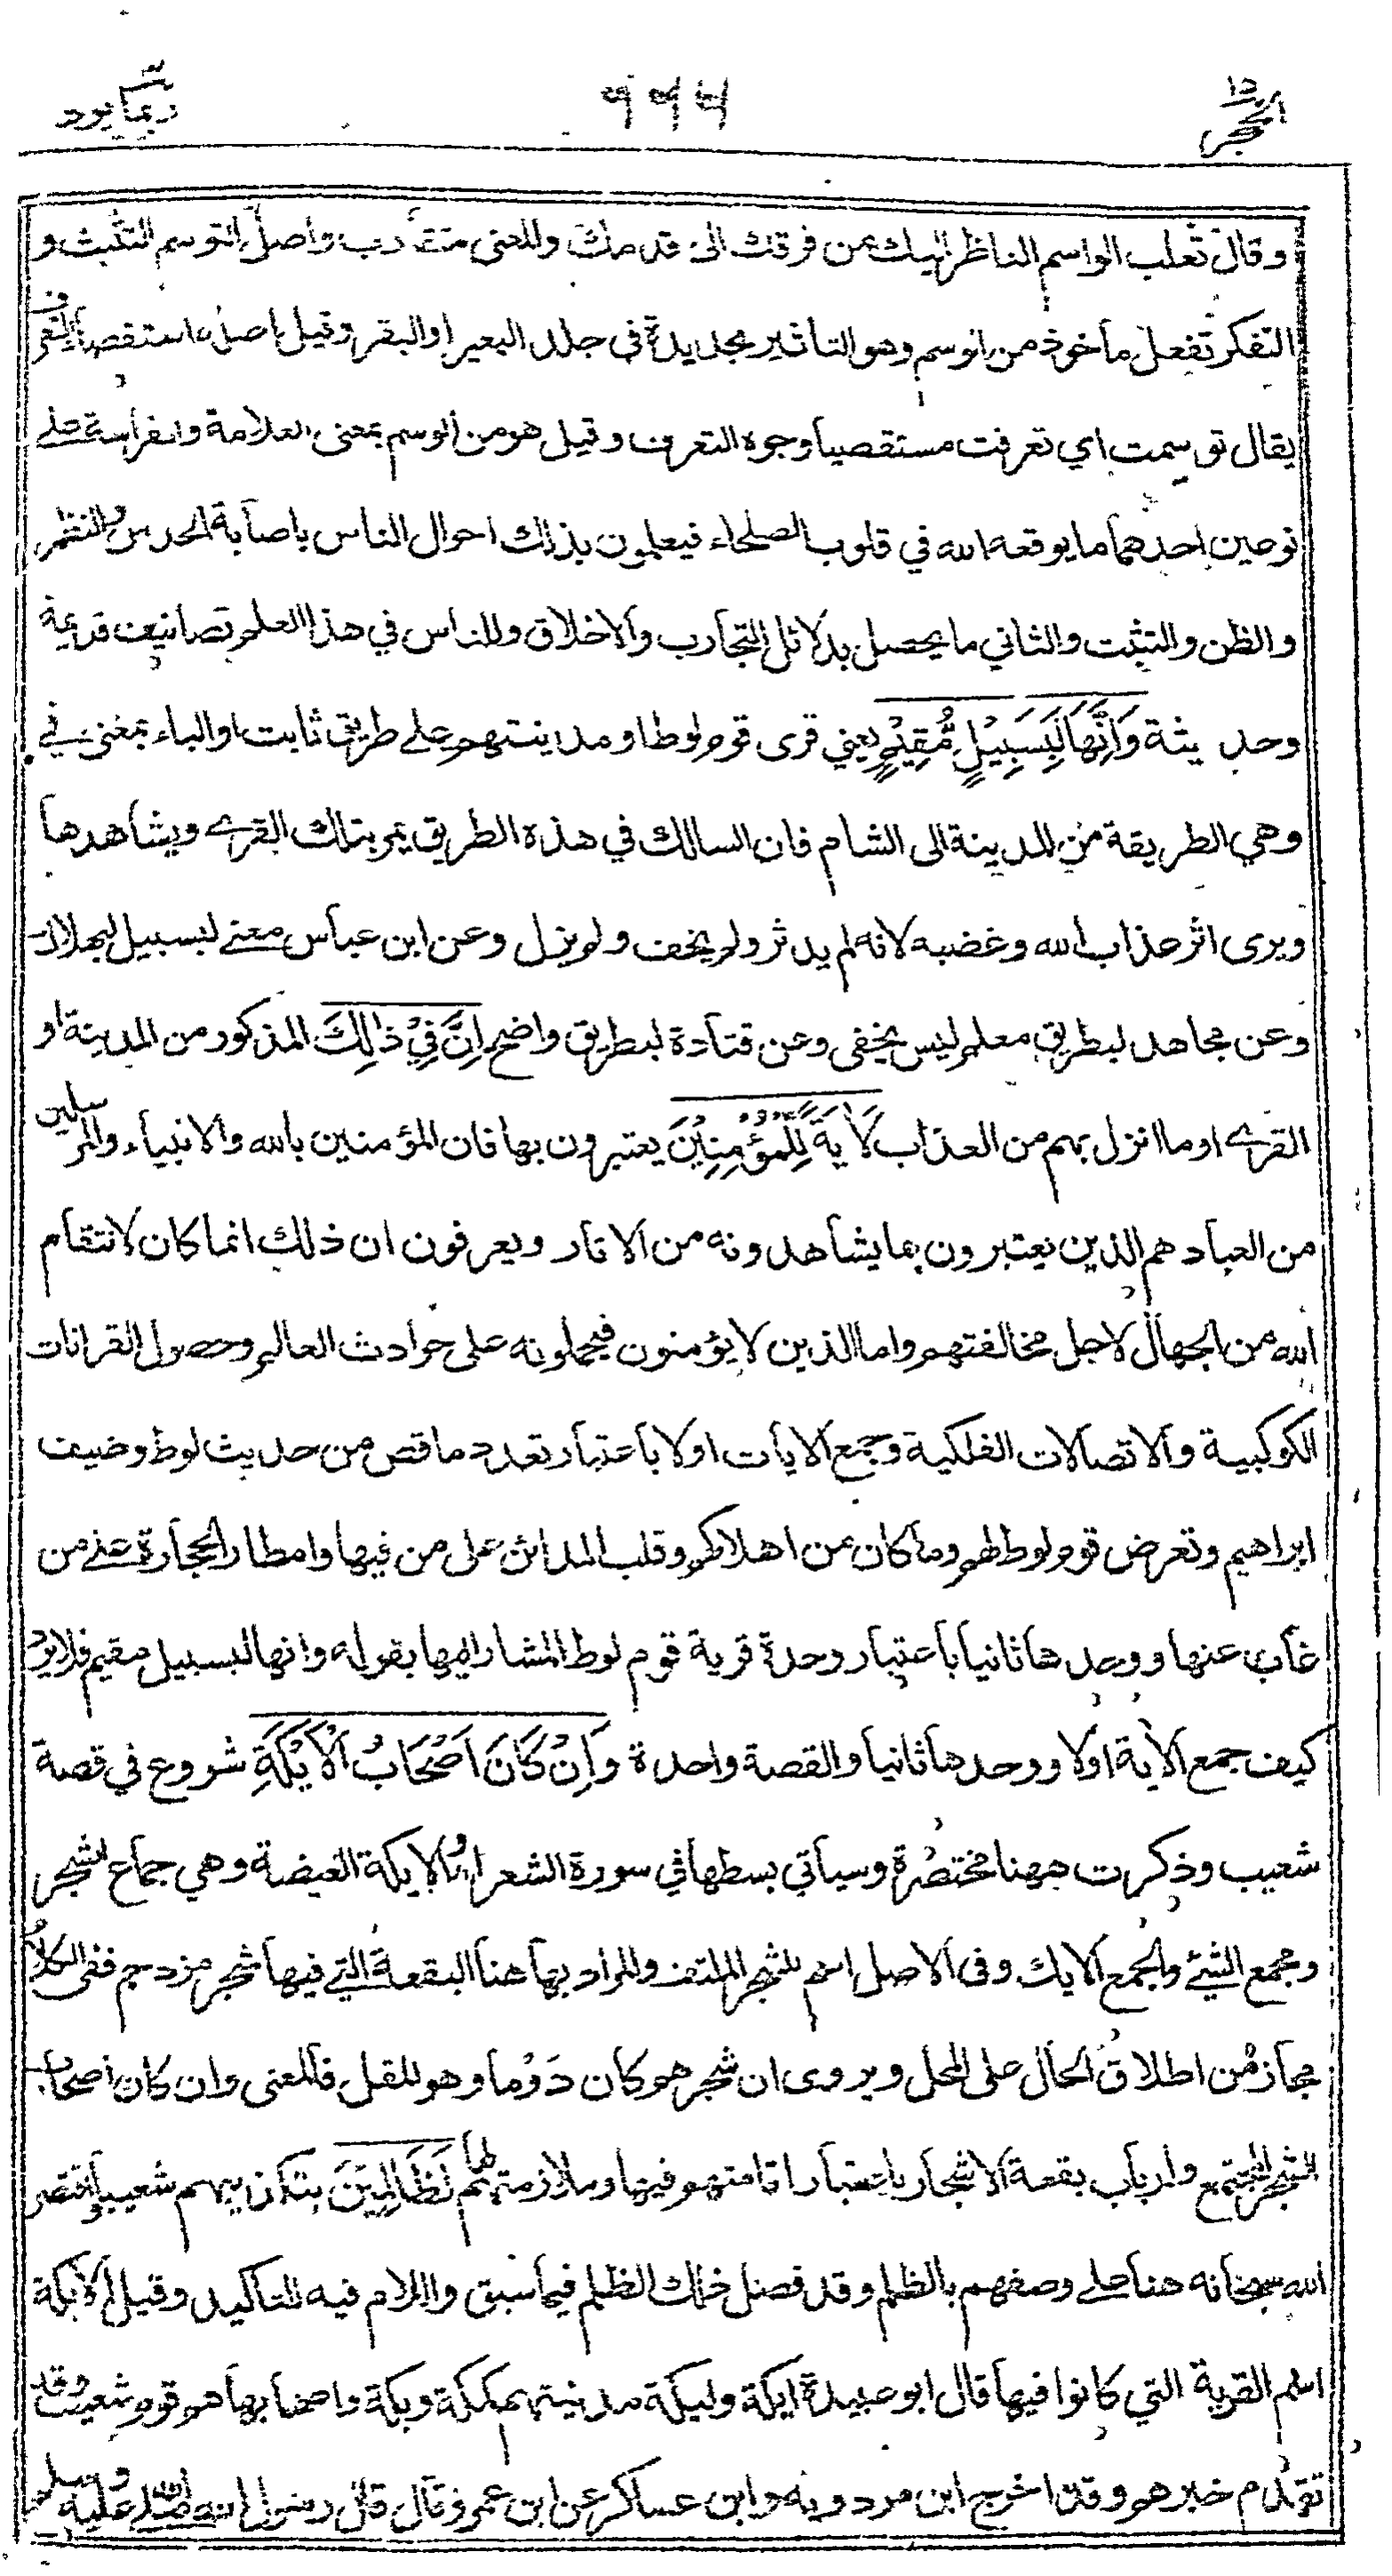 الحجر ١٥
٩٩٦
ربما يود
وقال ثعلب الواسم الناظر اليك من فرقك الى قدمك والمعنى متقارب واصل التوسم التثبت و
التفكر تفعل مأخوذ من الوسم وهو التاثير بحديدة في جلد البعير او البقر وقيل اصله استقصاء التعرف
يقال توسمت اي تعرفت مستقصيا وجوه التعرف وقيل هو من الوسم بمعنى العلامة والفراسة على
نوعين احدهما ما يوقعه الله في قلوب الصلحاء فيعلمون بذلك احوال الناس باصابة الحدس والنظر
والظن والتثبت والثاني ما يحصل بدلائل التجارب والاخلاق وللناس في هذا العلم تصانيف قديمة
وحديثة وَاِنَّهَا لَبِسَبِيْلٍ مُّقِيْمٍ يعني قرى قوم لوط او مدينتهم على طريق ثابت والباء بمعنى في
وهي الطريقة من المدينة الى الشام فان السالك في هذه الطريق يمر بتلك القرى ويشاهدها
ويرى اثر عذاب الله وغضبه لانه لم يدثر ولم يخف ولم يزل وعن ابن عباس معنى لبسبيل لبهلاك
وعن مجاهد لبطريق معلم ليس بخفى وعن قتادة لبطريق واضح اِنَّ فِيْ ذٰلِكَ المذكور من المدينة او
القرى او ما انزل بهم من العذاب لَاٰيَةً لِّلْمُؤْمِنِيْنَ يعتبرون بها فان المؤمنين بالله والانبياء والمرسلين
من العباد هم الذين يعتبرون بما يشاهدونه من الاثار ويعرفون ان ذلك انما كان لانتقام
الله من الجهال لاجل مخالفتهم واما الذين لا يؤمنون فيحملونه على حوادث العالم وحصول القرانات
الكوكبية والاتصالات الفلكية وجمع الايات اولا باعتبار تعدد ما قص من حديث لوط وضيف
ابراهيم وتعرض قوم لوط لهم وما كان من اهلاكهم وقلب المدائن على من فيها وامطار الحجارة على من
غاب عنها ووحدها ثانيا باعتبار وحدة قرية قوم لوط المشار اليها بقوله وانها لبسبيل مقيم فلا يرد
كيف جمع الاية اولا ووحدها ثانيا والقصة واحدة وَاِنْ كَانَ اَصْحَابُ الْاَيْكَةِ شروع في قصة
شعيب وذكرت ههنا مختصرة وسيأتي بسطها في سورة الشعراء والايكة الغيضة وهي جماع الشجر
ومجمع الشئ والجمع الايك وفى الاصل اسم للشجر الملتف والمراد بها هنا البقعة التي فيها شجر مزدحم ففى الكلام
مجاز من اطلاق الحال على المحل ويروى ان شجرهم كان دَوْما وهو المقل فالمعنى وان كان اصحاب
الشجر المجتمع وارباب بقعة الاشجار باعتبار اقامتهم فيها وملازمتهم لها لَظَالِمِيْنَ بتكذيبهم شعيبا واقتصر
الله سبحانه هنا على وصفهم بالظلم وقد فصل ذلك الظلم فيما سبق واللام فيه للتاكيد وقيل الايكة
اسم القرية التي كانوا فيها قال ابو عبيدة ايكة وليكة مدينتهم كمكة وبكة واصحابها هم قوم شعيب وقد
تقدم خبرهم وقد اخرج ابن مردويه وابن عساكر عن ابن عمرو قال قال رسول الله صلى الله عليه وسلم